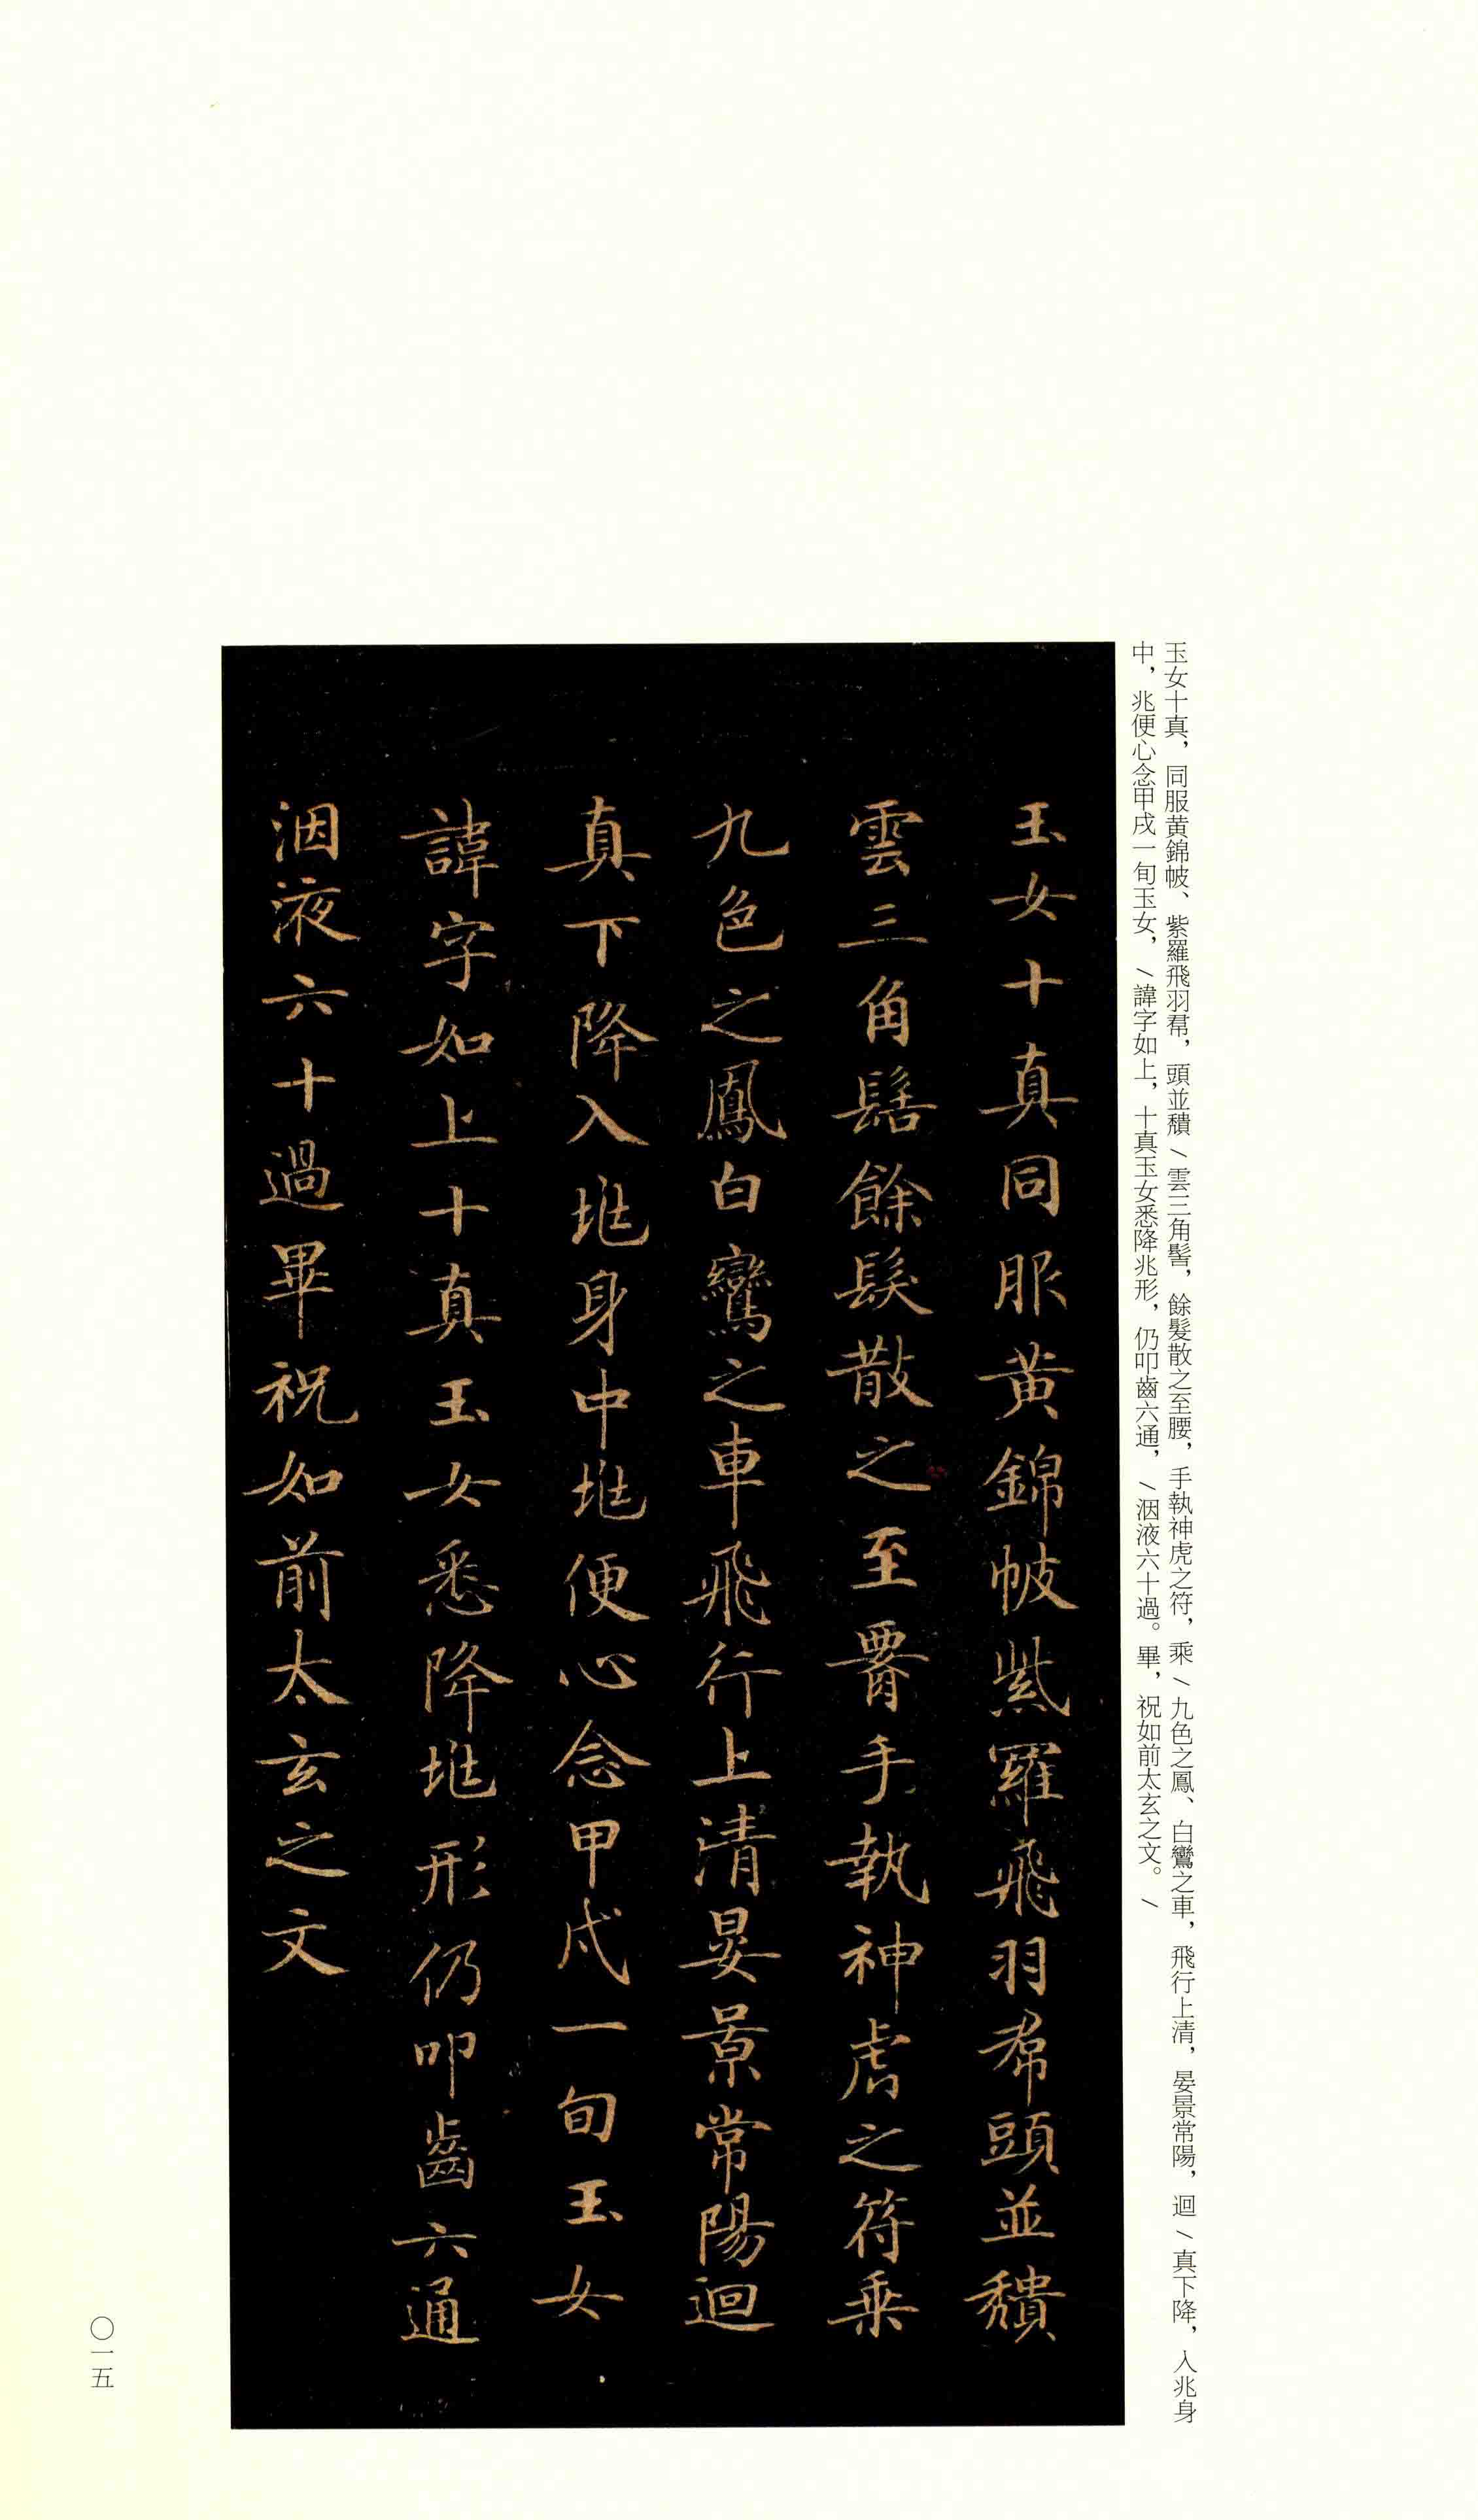 玉女十真，同服黄錦帔、紫羅飛羽帬，頭並穨／雲三角髻，餘髮散之至腰，手執神虎之符，乘／九色之鳳、白鸞之車，飛行上清，晏景常陽，迴／真下降，入兆身
中，兆便心念甲戌一旬玉女，／諱字如上，十真玉女悉降兆形，仍叩齒六通，／洇液六十過。畢，祝如前太玄之文。／
玉女十真同服黄錦帔紫羅飛羽帬頭並穨
雲三角髻餘髮散之至腰手執神虎之符乗
九色之鳳白鸞之車飛行上清晏景常陽迴
真下降入兆身中兆便心念甲戌一旬玉女
諱字如上十真玉女悉降兆形仍叩齒六通
洇液六十過畢祝如前太玄之文
〇一五